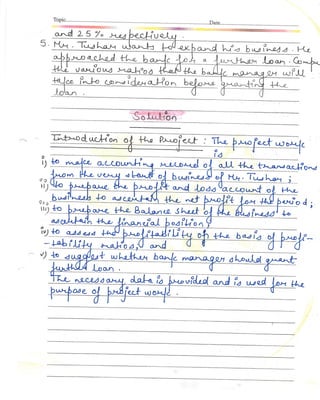 Topic
Date
and 25% respectively.
5. Mr. Tushar wants to expand his business. He
approached the bank for a further loan. Compute
the various ratios that the bank manager will
take into consideration before granting the
loan.
Solution
Introduction of the Project: The project work
is
i) to make accounting record of all the transactions
from the very start of business of Mr. Tushar;
ii) to prepare the profit and loss account of the
business to ascertain the net profit for the period;
iii) to prepare the Balance sheet of the business to
ascertain the financial position;
iv) to assess the profitability on the basis of profi-
-tability ratios; and
v) to suggest whether bank manager should grant
further loan.
The necessary data is provided and is used for the
purpose of project work.